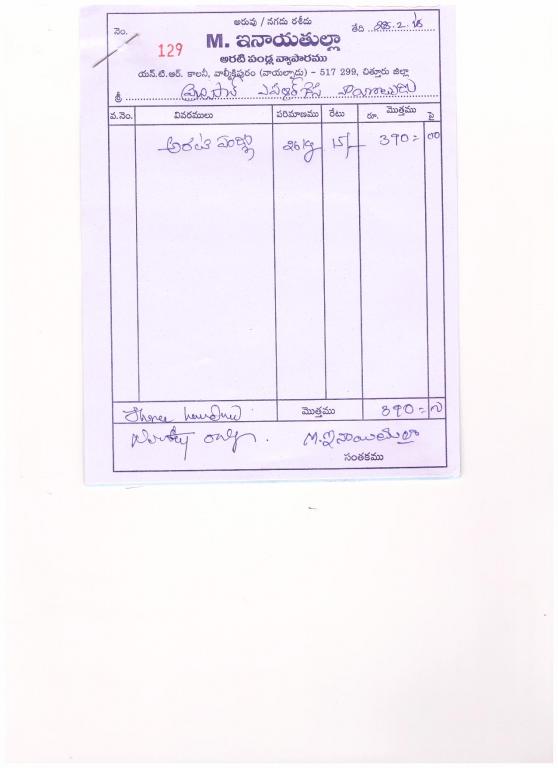 అరువు / నగదు రశీదు
నెం. 129
తేది 2.15
M. ఇనాయతుల్లా
అరటి పండ్ల వ్యాపారము
యన్.టి.ఆర్. కాలనీ, వాల్మీకిపురం (వాయల్పాడు) - 517 299, చిత్తూరు జిల్లా
శ్రీ
వ.నెం. వివరములు పరిమాణము రేటు మొత్తము రూ. పై
అరటి పండ్లు 26 kg 15/- 390= 00
Three hundred మొత్తము 390=
Ninety only. M. ఇనాయతుల్లా
సంతకము